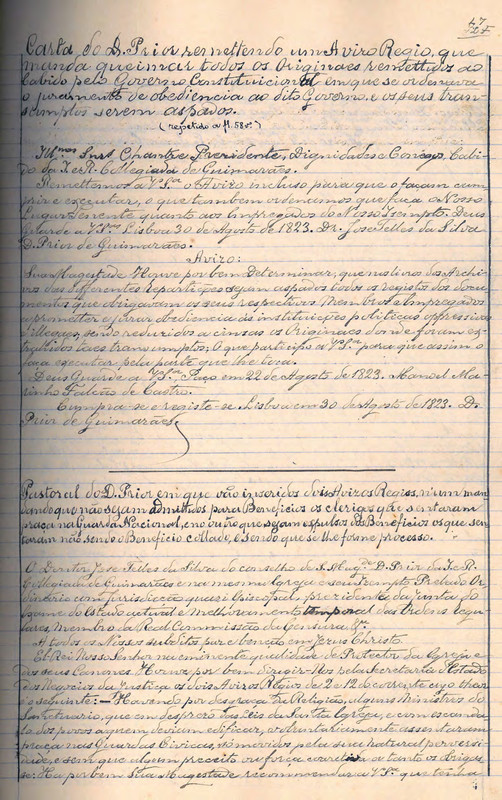 47
Carta do D. Prior remettendo um Aviso Regio, que
manda queimar todos os Originaes remettidos ao
Cabido pelo Governo Constitucional em que se ordenava
o juramento de obediencia ao dito Governo, e os seus tran-
sumptos serem aspados.
(repetido a fl. 58 v.º)
Ill.mos Snrs. Chantre Presidente, Dignidades e Conegos, Cabi-
do da I. e R. Collegiada de Guimarães.
Remettemos a V. S.ria o Aviso incluso para que o façam cum-
prir e executar, o que tambem ordenamos que faça o Nosso
Lugar Tenente quanto aos Empregados do Nosso Isempto. Deus
Guarde a V. S.rias Lisboa 30 de Agosto de 1823. Dr. José Telles da Silva
D. Prior de Guimarães.
Aviso:
Sua Magestade Houve por bem Determinar, que nos livros dos Archi-
vos das differentes Repartições sejam aspados todos os registos dos docu-
mentos que obrigavam os seus respectivos Membros e Empregados
a prometter e jurar obediencia ás instituições politicas oppressivas
e illegaes, sendo reduzidos a cinzas os Originaes donde foram ex-
trahidos taes transumptos; O que participo a V. S.ria para que assim o
faça executar pela parte que lhe toca.
Deus Guarde a V. S.ria Paço em 22 de Agosto de 1823. Manoel Ma-
rinho Falcão de Castro.
Cumpra-se e registe-se Lisboa em 30 de Agosto de 1823. D.
Prior de Guimarães.
Pastoral do D. Prior em que vão inseridos dois Avisos Regios, n'um man-
dando que não sejam admittidos para Beneficios os clerigos que sentaram
praça na Guarda Nacional, e no outro que sejam expulsos dos Beneficios os que sen-
taram não sendo o Beneficio collado, e sendo que se lhe forme processo.
O Doutor José Telles da Silva do conselho de S. Mag.e D. Prior da I. e R.
Collegiada de Guimarães e na mesma Igreja e seu Isempto Prelado Or-
dinario com jurisdicção quasi Episcopal, presidente da Junta do
Exame do Estado actual e Melhoramento temporal das Ordens Regu-
lares, Membro da Real Commissão da Censura &.ª
A todos os Nossos subditos paz e benção em Jesus Christo.
El Rei Nosso Senhor na eminente qualidade de Protector da Igreja e
dos seus Canones Houve por bem Dirigir-Nos pela Secretaria d'Estado
dos Negocios da Justiça os dois Avisos Regios de 2 e 12 do corrente cujo theor
é o seguinte: — Havendo por desgraça da Religião, alguns Ministros do
Sanctuario, que em desprezo das Leis da Santa Igreja, e com escanda-
lo dos povos a quem deviam edificar, voluntariamente assentaram
praça nas Guardas Civicas, só movidos pela sua natural perversi-
dade, e sem que algum preceito ou força coactiva a tanto os obrigas-
se: Ha por bem Sua Magestade recommendar a V. S.ª que tenha